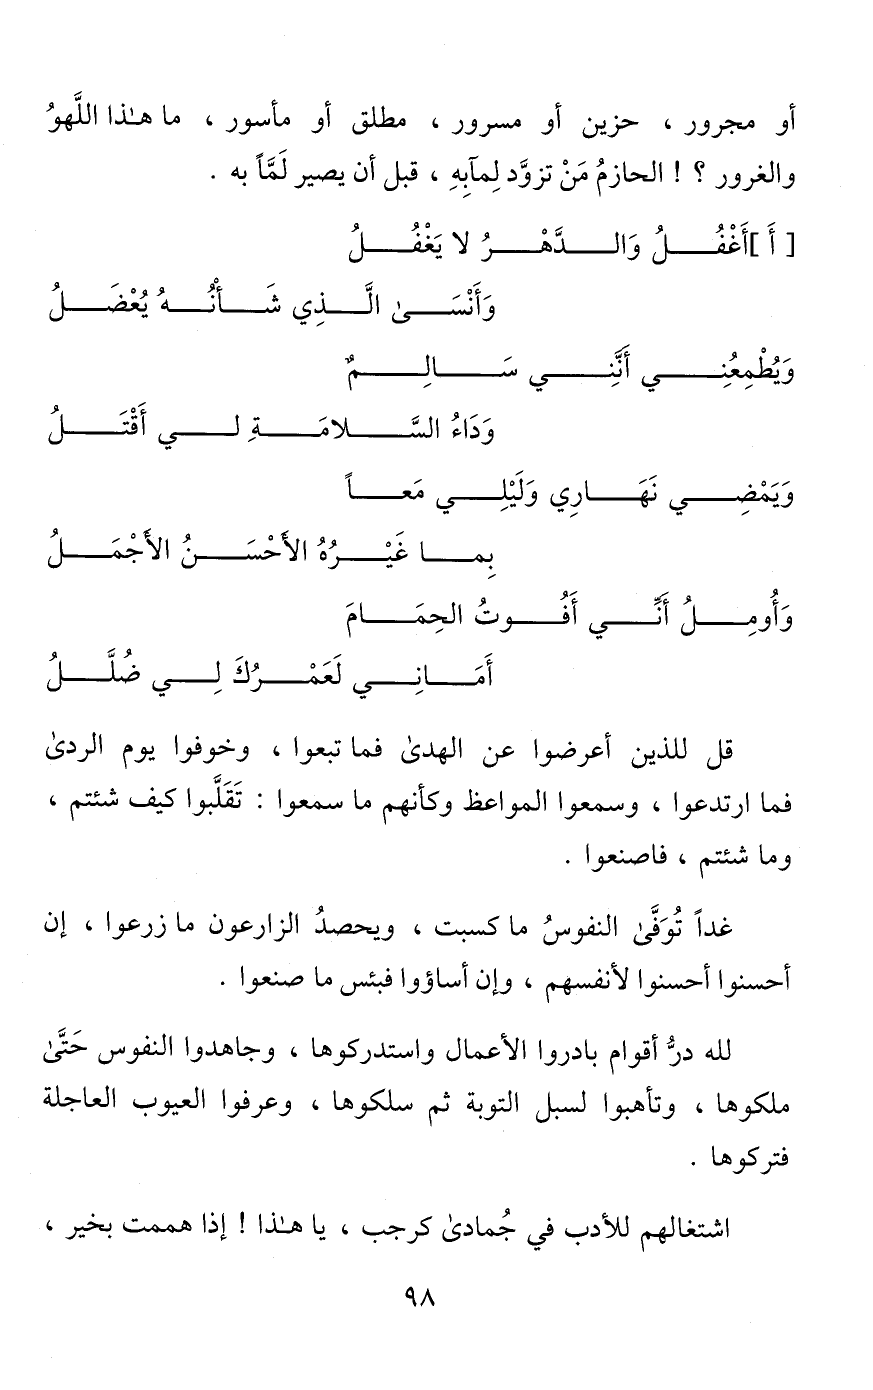 أو مجرور ، حزين أو مسرور ، مطلق أو مأسور ، ما هـٰذا اللَّهوُ
والغرور ؟ ! الحازمُ مَنْ تزوَّد لِمآبِهِ ، قبل أن يصير لَمَّاً به .
[ أَ ]أَغْفُـــلُ وَالـــدَّهْـــرُ لا يَغْفُـــلُ
وَأَنْسَـــىٰ الَّـــذِي شَـــأْنُـــهُ يُعْضَـــلُ
وَيُطْمِعُنِـــي أَنَّنِـــي سَـــالِـــمٌ
وَدَاءُ السَّـــلامَـــةِ لـــي أَقْتَـــلُ
وَيَمْضِـــي نَهَـــارِي وَلَيْلِـــي مَعـــاً
بِمـــا غَيْـــرُهُ الأَحْسَـــنُ الأَجْمَـــلُ
وَأُومِـــلُ أَنِّـــي أَفُـــوتُ الحِمَـــامَ
أَمَـــانِـــي لَعَمْـــرُكَ لِـــي ضُلَّـــلُ
قل للذين أعرضوا عن الهدىٰ فما تبعوا ، وخوفوا يوم الردىٰ
فما ارتدعوا ، وسمعوا المواعظ وكأنهم ما سمعوا : تَقَلَّبوا كيف شئتم ،
وما شئتم ، فاصنعوا .
غداً تُوَفَّىٰ النفوسُ ما كسبت ، ويحصدُ الزارعون ما زرعوا ، إن
أحسنوا أحسنوا لأنفسهم ، وإن أساؤوا فبئس ما صنعوا .
لله درُّ أقوام بادروا الأعمال واستدركوها ، وجاهدوا النفوس حَتَّىٰ
ملكوها ، وتأهبوا لسبل التوبة ثم سلكوها ، وعرفوا العيوب العاجلة
فتركوها .
اشتغالهم للأدب في جُمادىٰ كرجب ، يا هـٰذا ! إذا هممت بخير ،
٩٨